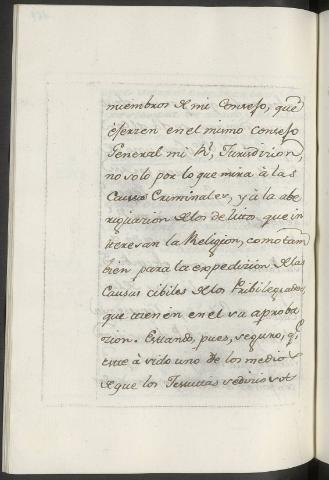 miembros de mi Consejo, que
exerzen en el mismo consejo
General mi R.l Jurisdizion,
no solo por lo que mira à las
Causas Criminales, y à la abe
riguazion de los delitos que in
teresan la Religion, como tam
bien para la expedizion de las
Causas cibiles de los Pribilegiados,
que
en el su aproba
zion. Estando, pues, seguro, q.e
este à sido uno de los medios
de que los Jesuitas